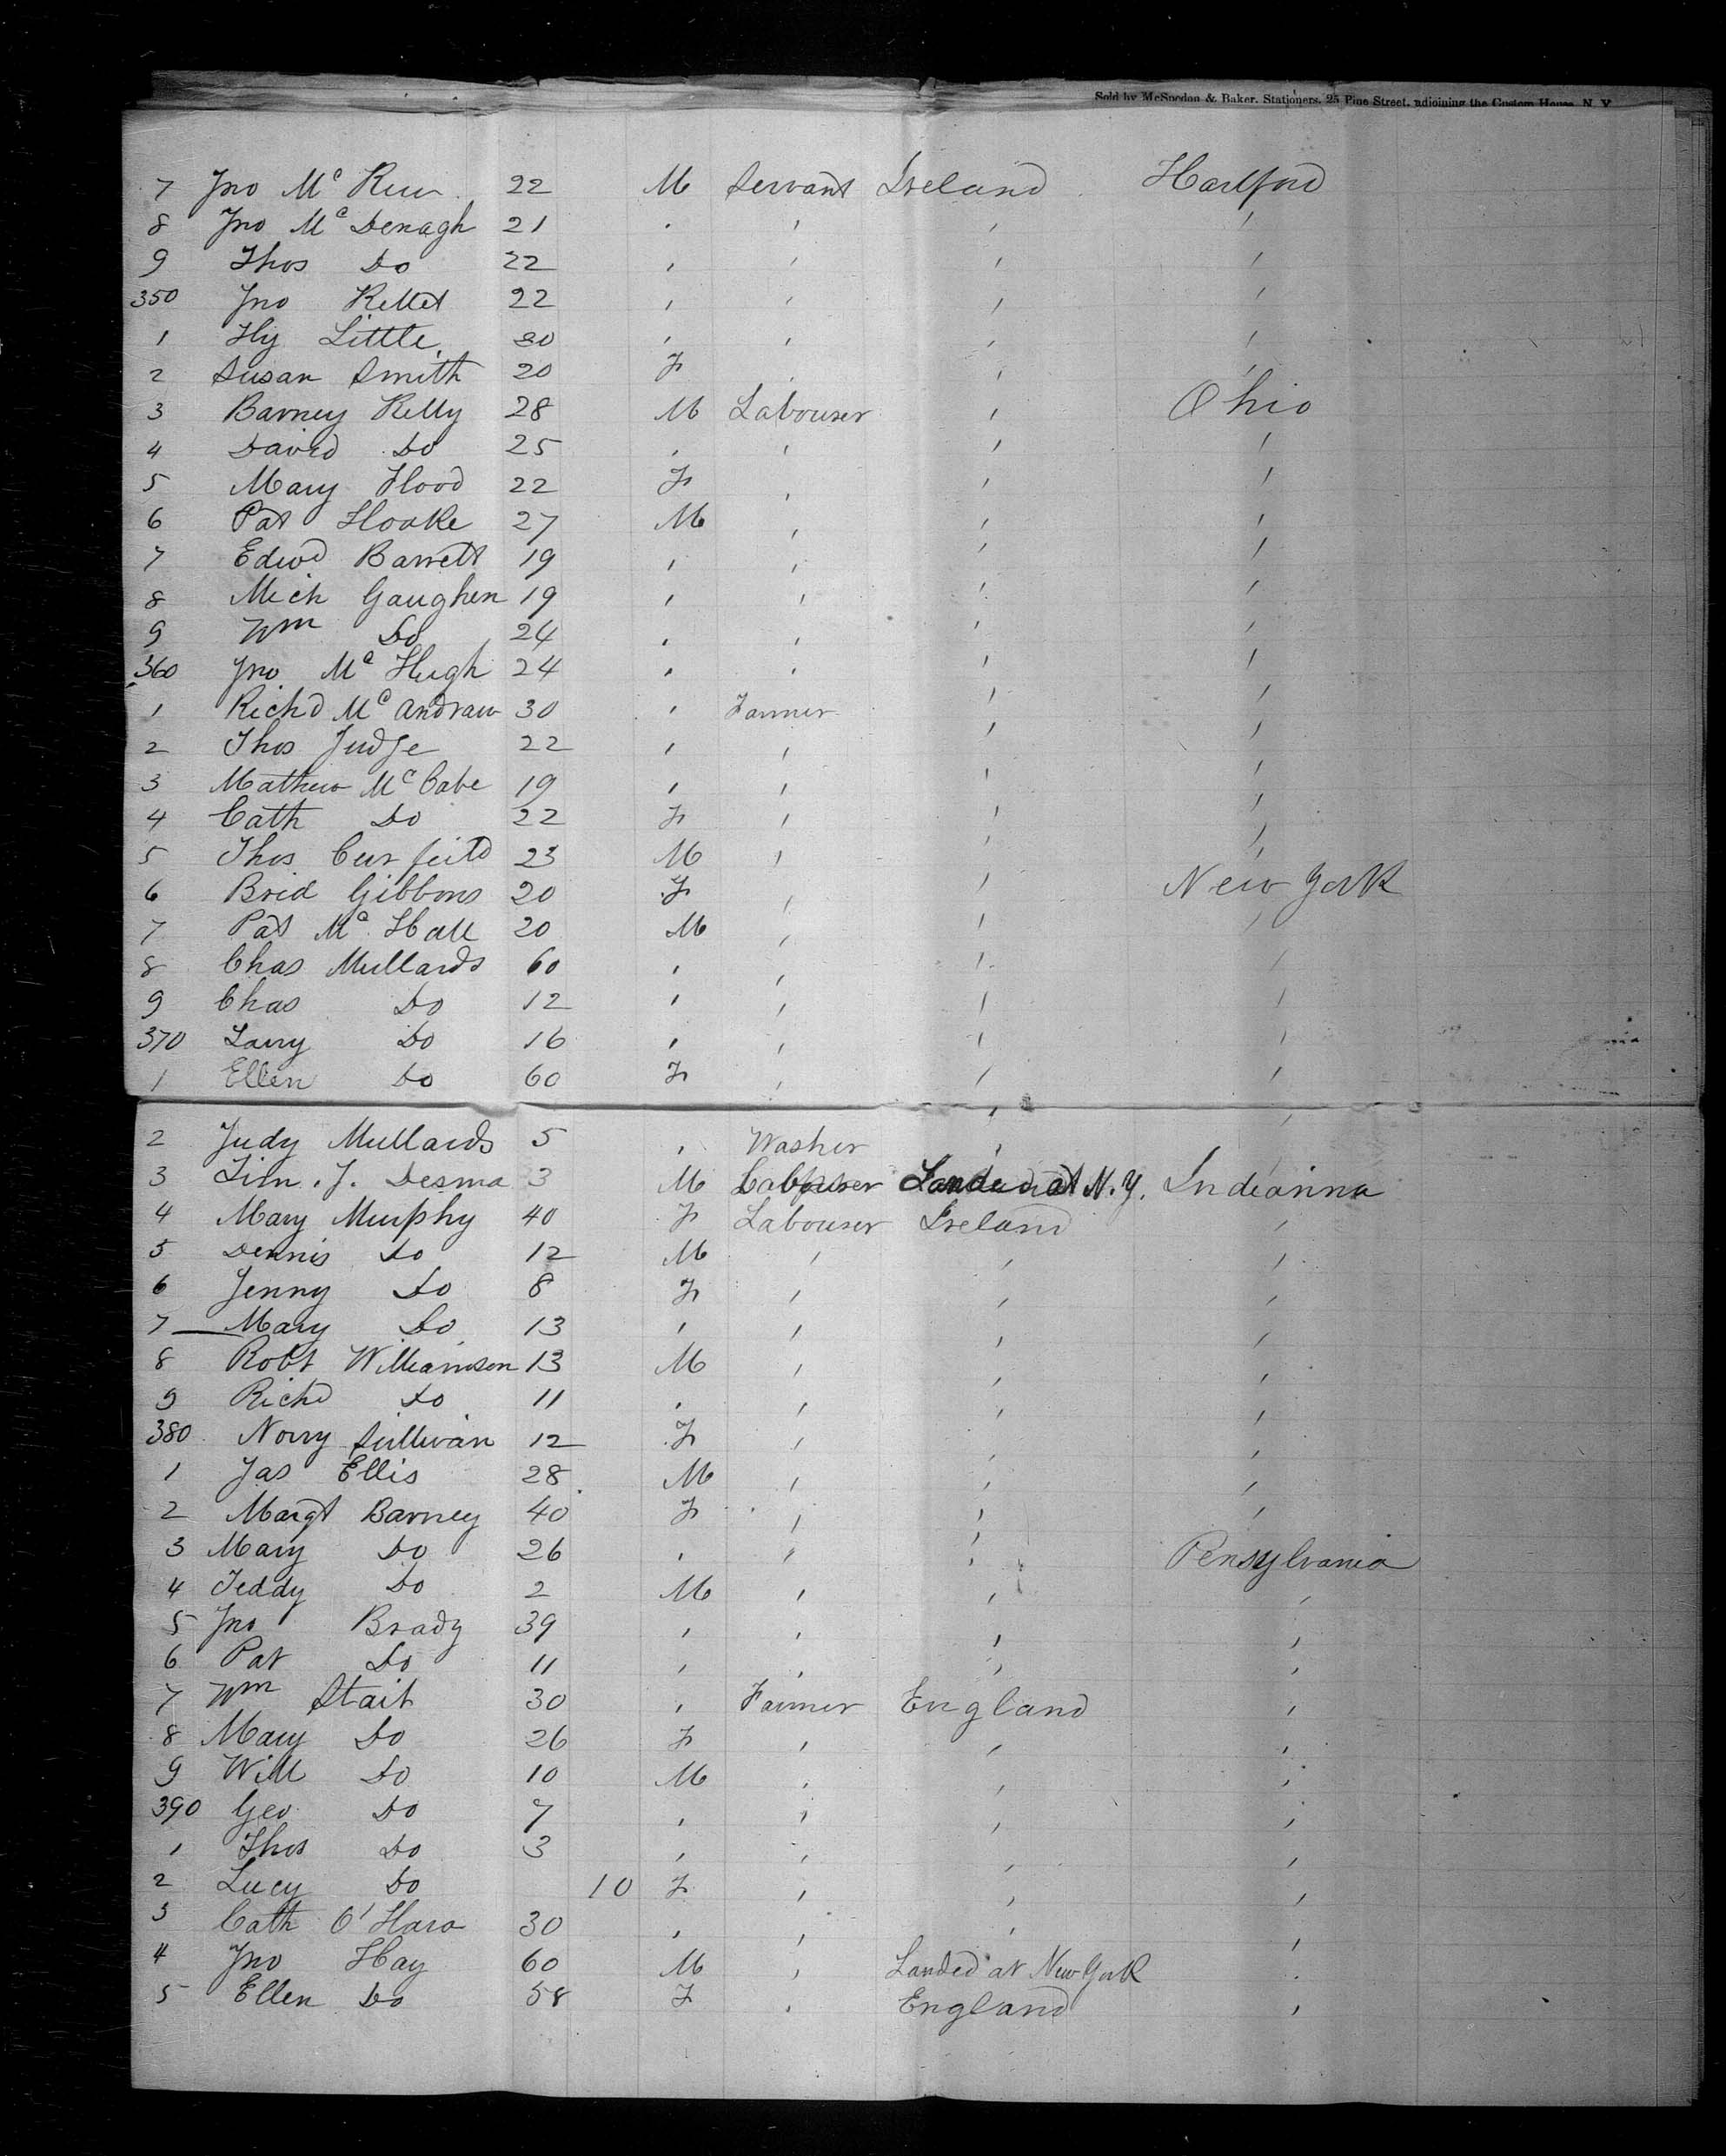 Sold by McSpedon & Baker. Stationers. 25 Pine Street, adjoining the Custom House, N. Y.
7 Jno Mc 22 M Servant Ireland Hartford
8 Jno Mc Denagh 21 . ' ' '
9 Thos Do 22 ' ' ' '
350 Jno Kellet 22 ' ' ' '
1 Hy Little 20 ' ' ' '
2 Susan Smith 20 F ' ' '
3 Barney Kelly 28 M Labourer ' Ohio
4 David Do 25 ' ' ' '
5 Mary Flood 22 F ' ' '
6 Pat Hooke 27 M ' ' '
7 Edwd Barrett 19 ' ' ' '
8 Mich Gaughen 19 ' ' ' '
9 Wm Do 24 ' ' ' '
360 Jno Mc Hugh 24 ' ' ' '
1 Richd Mc Andrew 30 ' Farmer ' '
2 Thos Judge 22 ' ' ' '
3 Mathew Mc Cabe 19 ' ' ' '
4 Cath Do 22 F ' ' '
5 Thos 23 M ' ' '
6 Brid Gibbons 20 F ' ' New York
7 Pat Mc Hall 20 M ' ' '
8 Chas Mullards 60 ' ' ' '
9 Chas Do 12 ' ' ' '
370 Larry Do 16 ' ' ' '
1 Ellen Do 60 F ' ' '
2 Judy Mullards 5 ' Washer ' '
3 Tim. J. Desma 3 M Labourer Landed at N.Y. Indeanna
4 Mary Murphy 40 F Labourer Ireland '
5 Dennis Do 12 M ' ' '
6 Jenny Do 8 F ' ' '
7 Mary Do 13 ' ' ' '
8 Robt Williamson 13 M ' ' '
9 Richd Do 11 ' ' ' '
380 Norry Sullivan 12 F ' ' '
1 Jas Ellis 28 M ' ' '
2 Margt Barney 40 F ' ' '
3 Mary Do 26 ' " ' Pensylvania
4 Teddy Do 2 M ' ' '
5 Jno Brady 39 ' ' ' '
6 Pat Do 11 ' ' ' '
7 Wm Stait 30 ' Farmer England '
8 Mary Do 26 F ' ' '
9 Will Do 10 M ' ' '
390 Geo Do 7 ' ' ' '
1 Thos Do 3 ' ' ' '
2 Lucy Do 10 F ' ' '
3 Cath O'Hara 30 ' ' ' '
4 Jno Hay 60 M ' Landed at New York '
5 Ellen Do 58 F ' England '